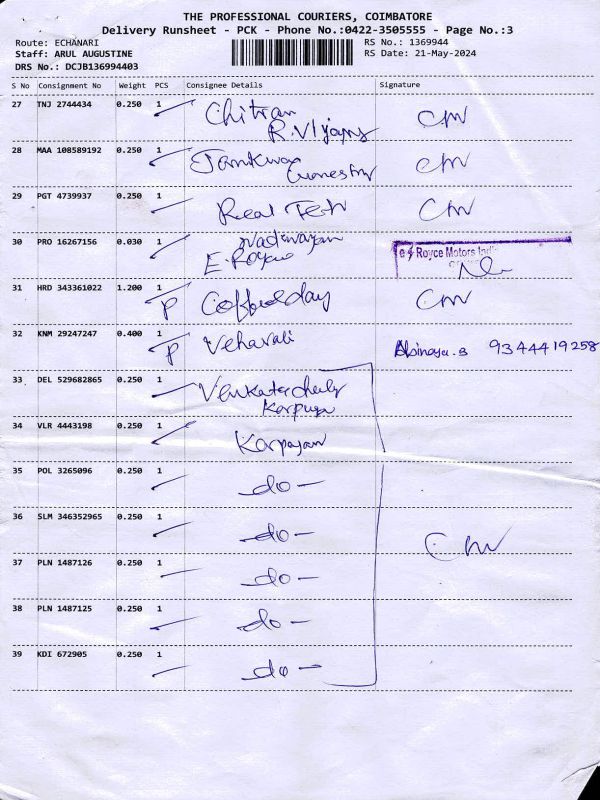 THE PROFESSIONAL COURIERS, COIMBATORE
Delivery Runsheet - PCK - Phone No.:0422-3505555 - Page No.:3
Route: ECHANARI
RS No.: 1369944
Staff: ARUL AUGUSTINE
RS Date: 21-May-2024
DRS No.: DCJB136994403
S No Consignment No Weight PCS Consignee Details Signature
27 TNJ 2744434 0.250 1 Chitran
28 MAA 108589192 0.250 1
29 PGT 4739937 0.250 1 Real Tech
30 PRO 16267156 0.030 1
E. Royce
Royce Motors Indi
31 HRD 343361022 1.200 1 P Coffee day
32 KNM 29247247 0.400 1 P 9344419258
33 DEL 529682865 0.250 1
34 VLR 4443198 0.250 1 Karpagam
35 POL 3265096 0.250 1 - do -
36 SLM 346352965 0.250 1 - do -
37 PLN 1487126 0.250 1 - do -
38 PLN 1487125 0.250 1 - do -
39 KDI 672905 0.250 1 - do -